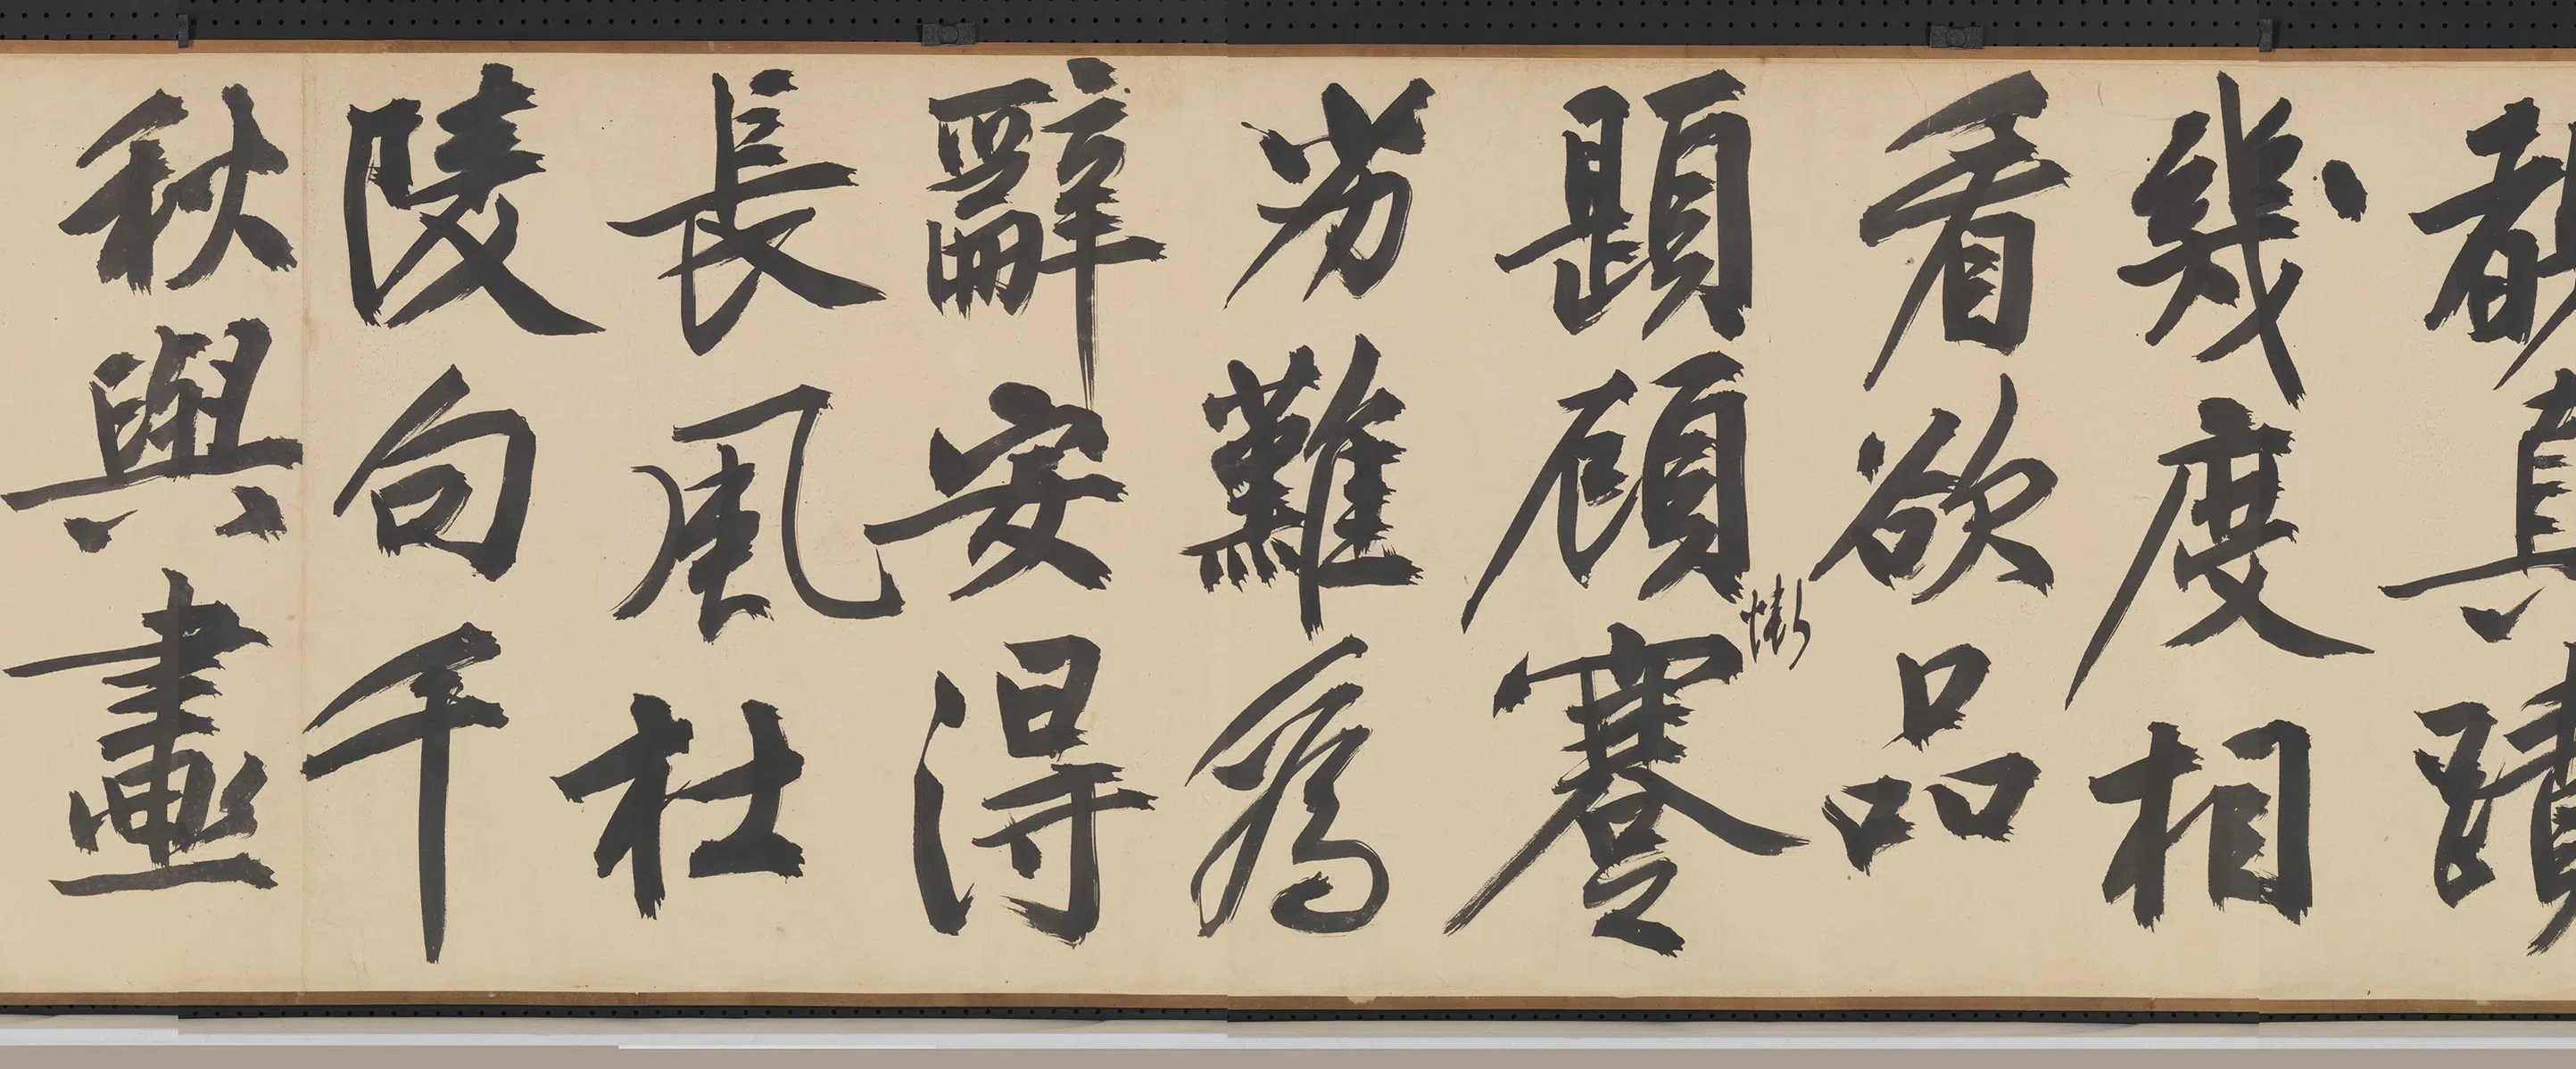 真蹟
幾度相
看欲品
題顧慚蹇
劣難為
辭安得
長風杜
陵句千
秋與畫